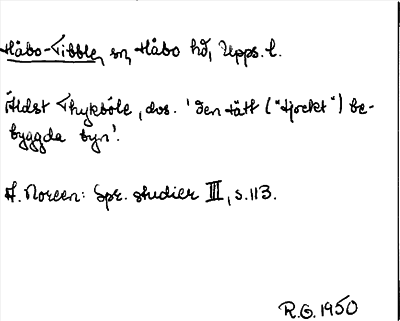 Håbo-Tibble, sn, Håbo hd, Upps. l.
Äldst Thykböle, dvs. 'den tätt ("tjockt") be-
byggda byn'.
A. Noreen: Spr. studier III, s. 113.
R.G. 1950